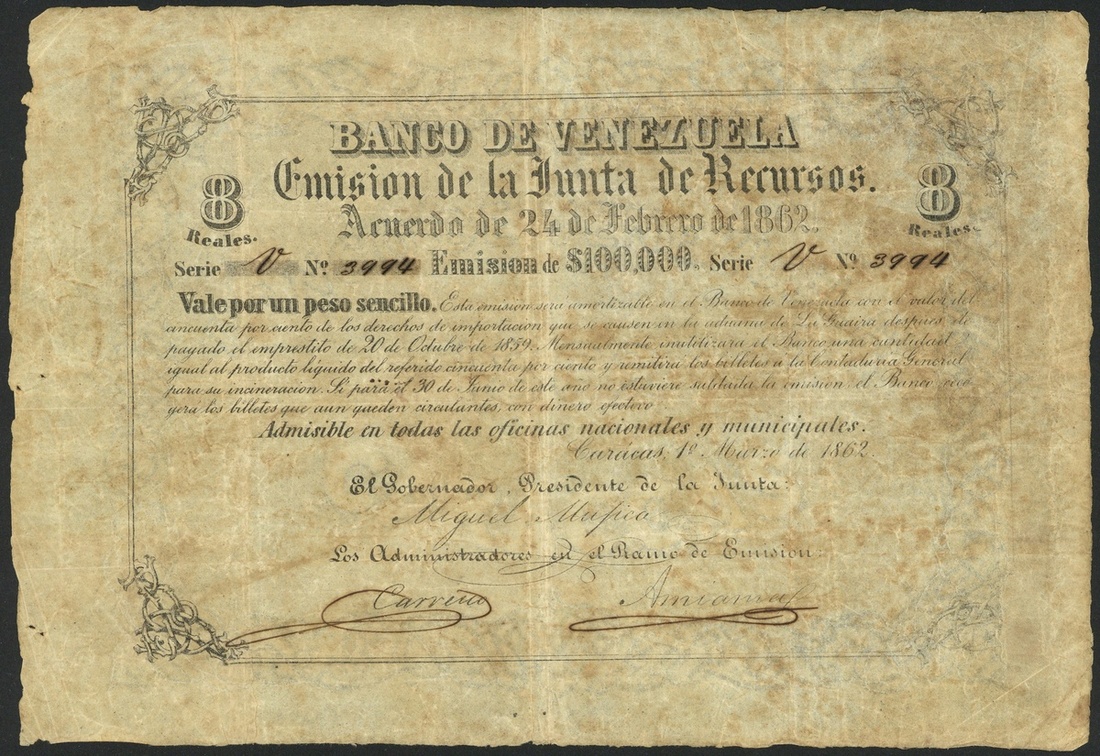 BANCO DE VENEZUELA
Emision de la Junta de Recursos.
8 Acuerdo de 24 de Febrero de 1862. 8
Reales. Reales.
Serie V Nº 3994 Emision de $100,000. Serie V Nº 3994
Vale por un peso sencillo. Esta emision será amortizable en el Banco de Venezuela con el valor del
cincuenta por ciento de los derechos de importacion que se causen en la aduana de La Guaira despues de
pagado el emprestito de 20 de Octubre de 1859. Mensualmente inutilizará el Banco una cantidad
igual al producto líquido del referido cincuenta por ciento y remitirá los billetes a la Contaduria General
para su incineracion. Si para el 30 de Junio de este año no estuviere saldada la emision, el Banco reco
gerá los billetes que aun queden circulantes, con dinero efectivo
Admisible en todas las oficinas nacionales y municipales.
Carácas, 1º Marzo de 1862.
El Gobernador, Presidente de la Junta:
Miguel Mujica
Los Administradores en el Ramo de Emision:
Carreño